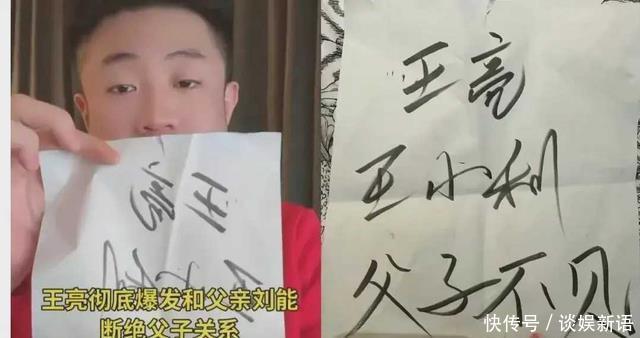 王亮彻底爆发和父亲刘能
断绝父子关系
王亮
王小利
父子不见
快传号/谈娱新语